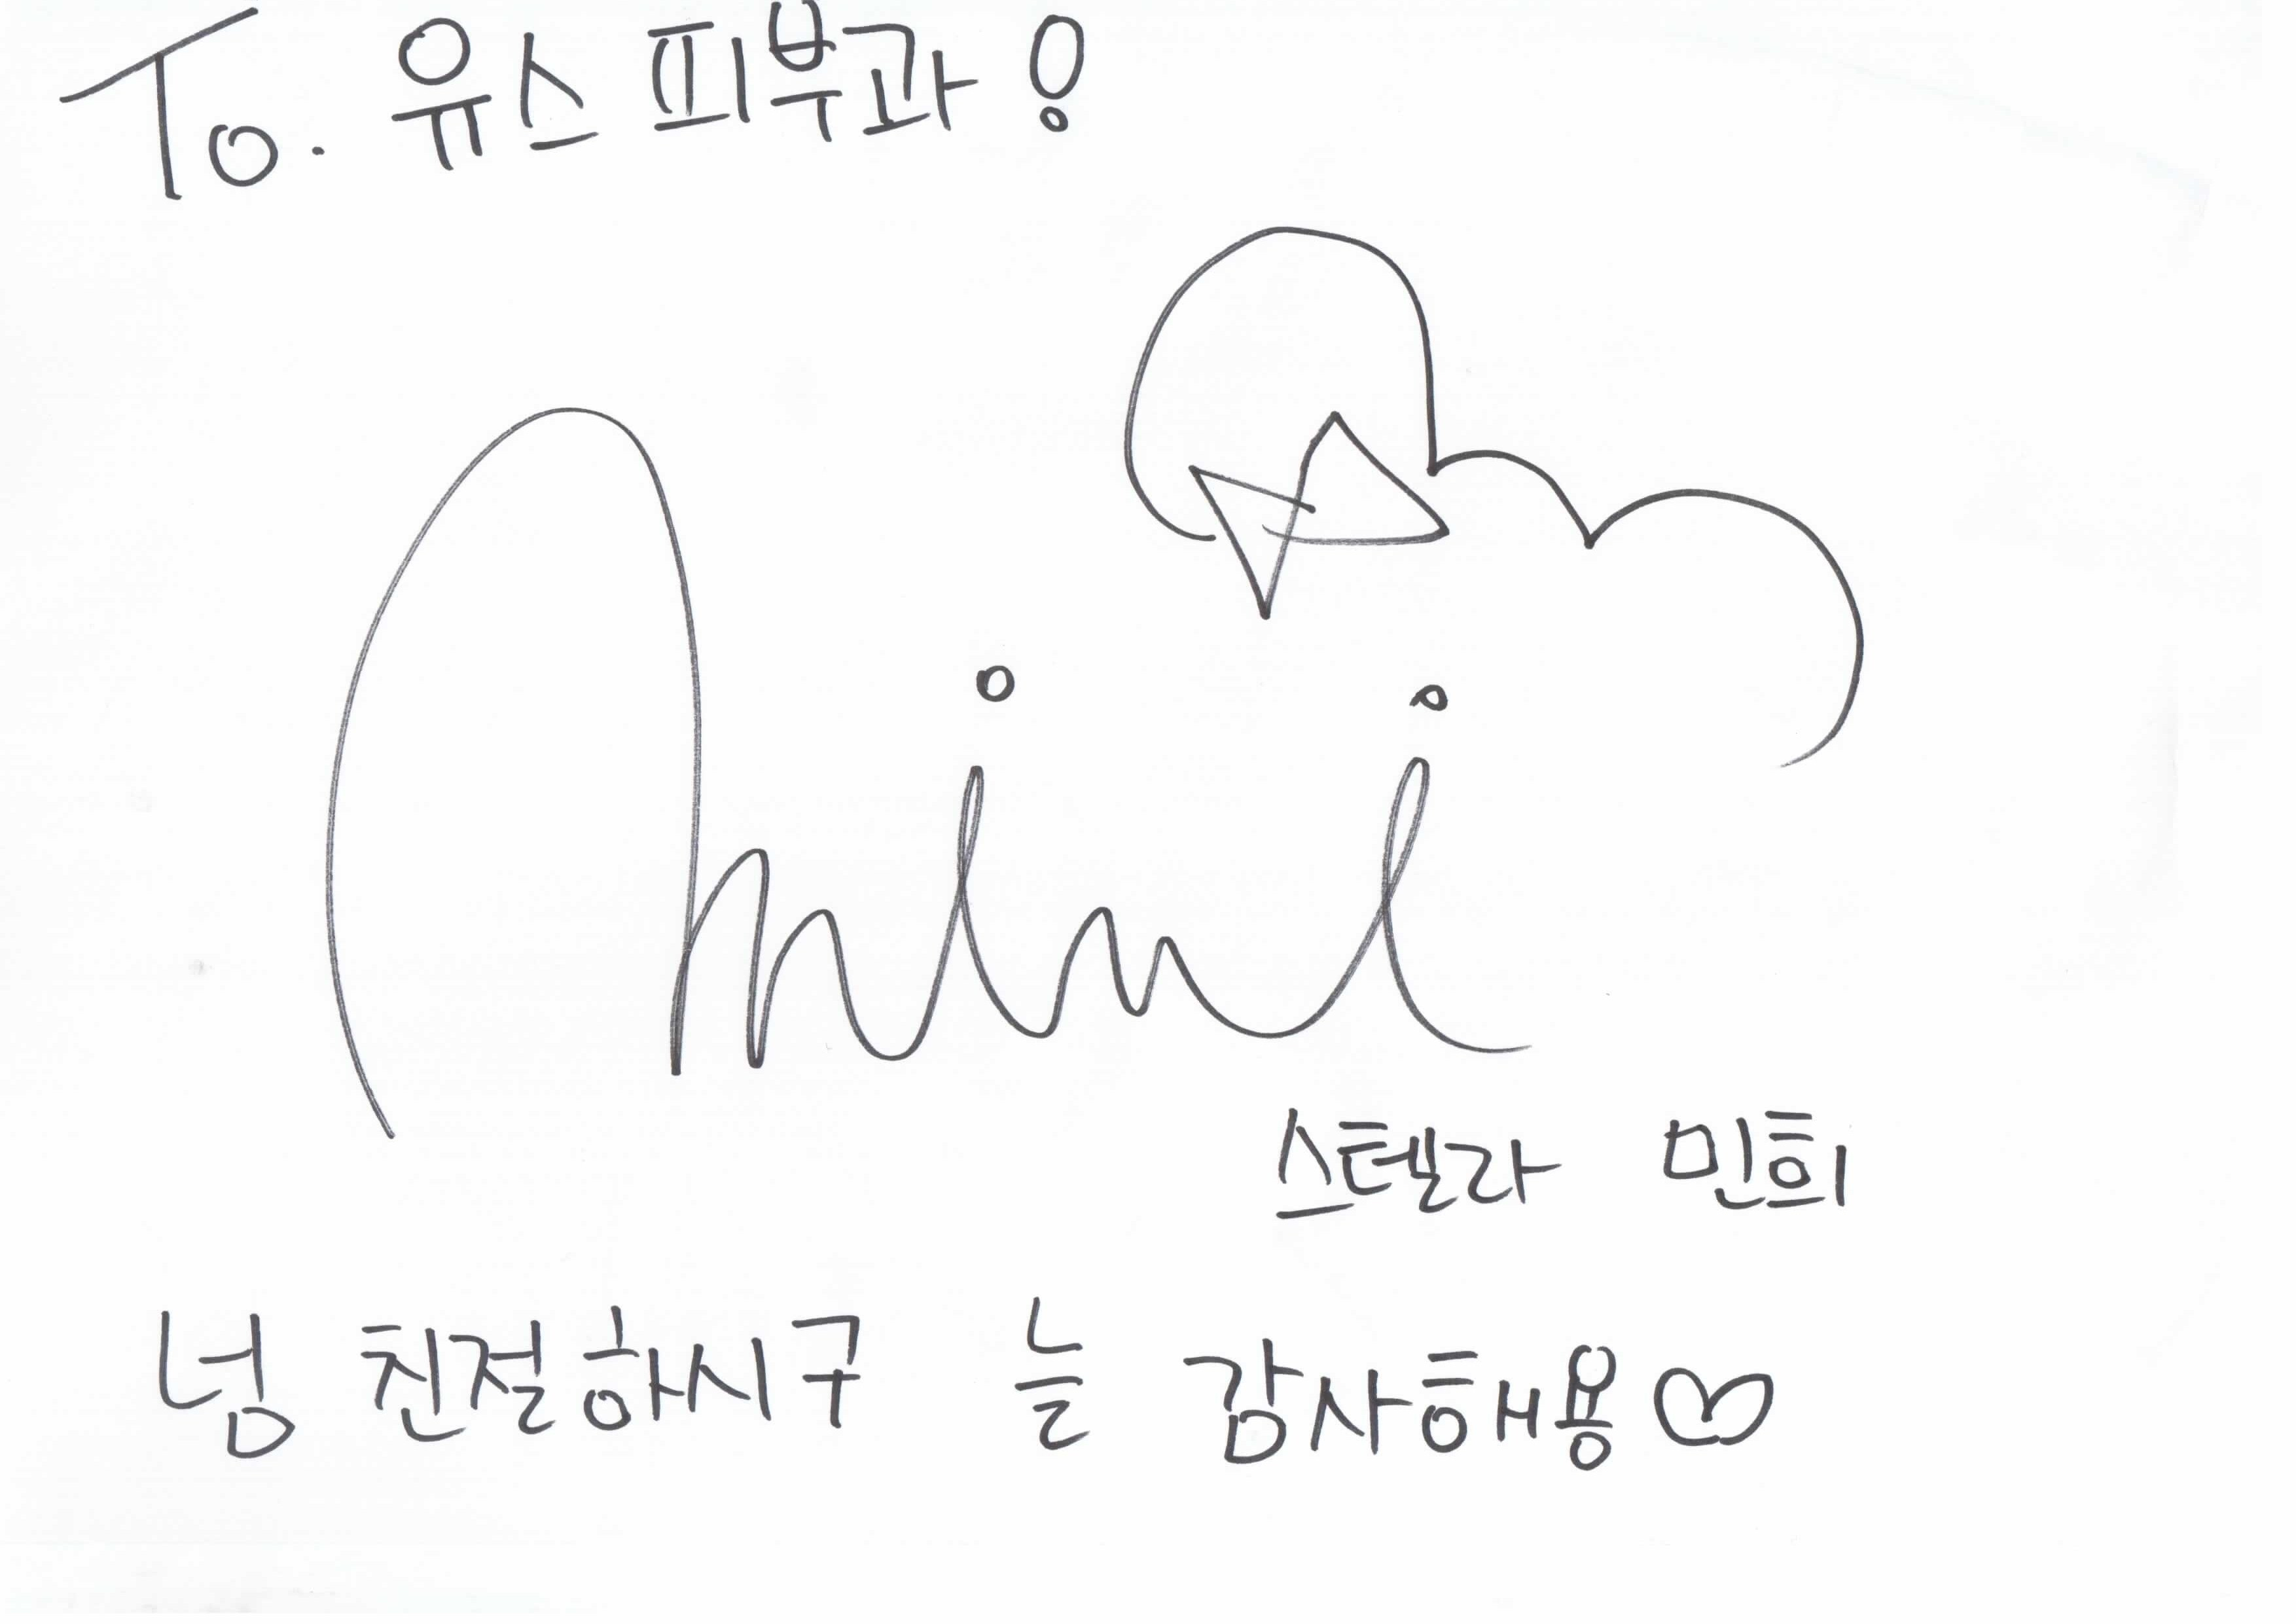 To. 유스피부과!
mimi
스텔라 민희
넘 친절하시구 늘 감사해용♡